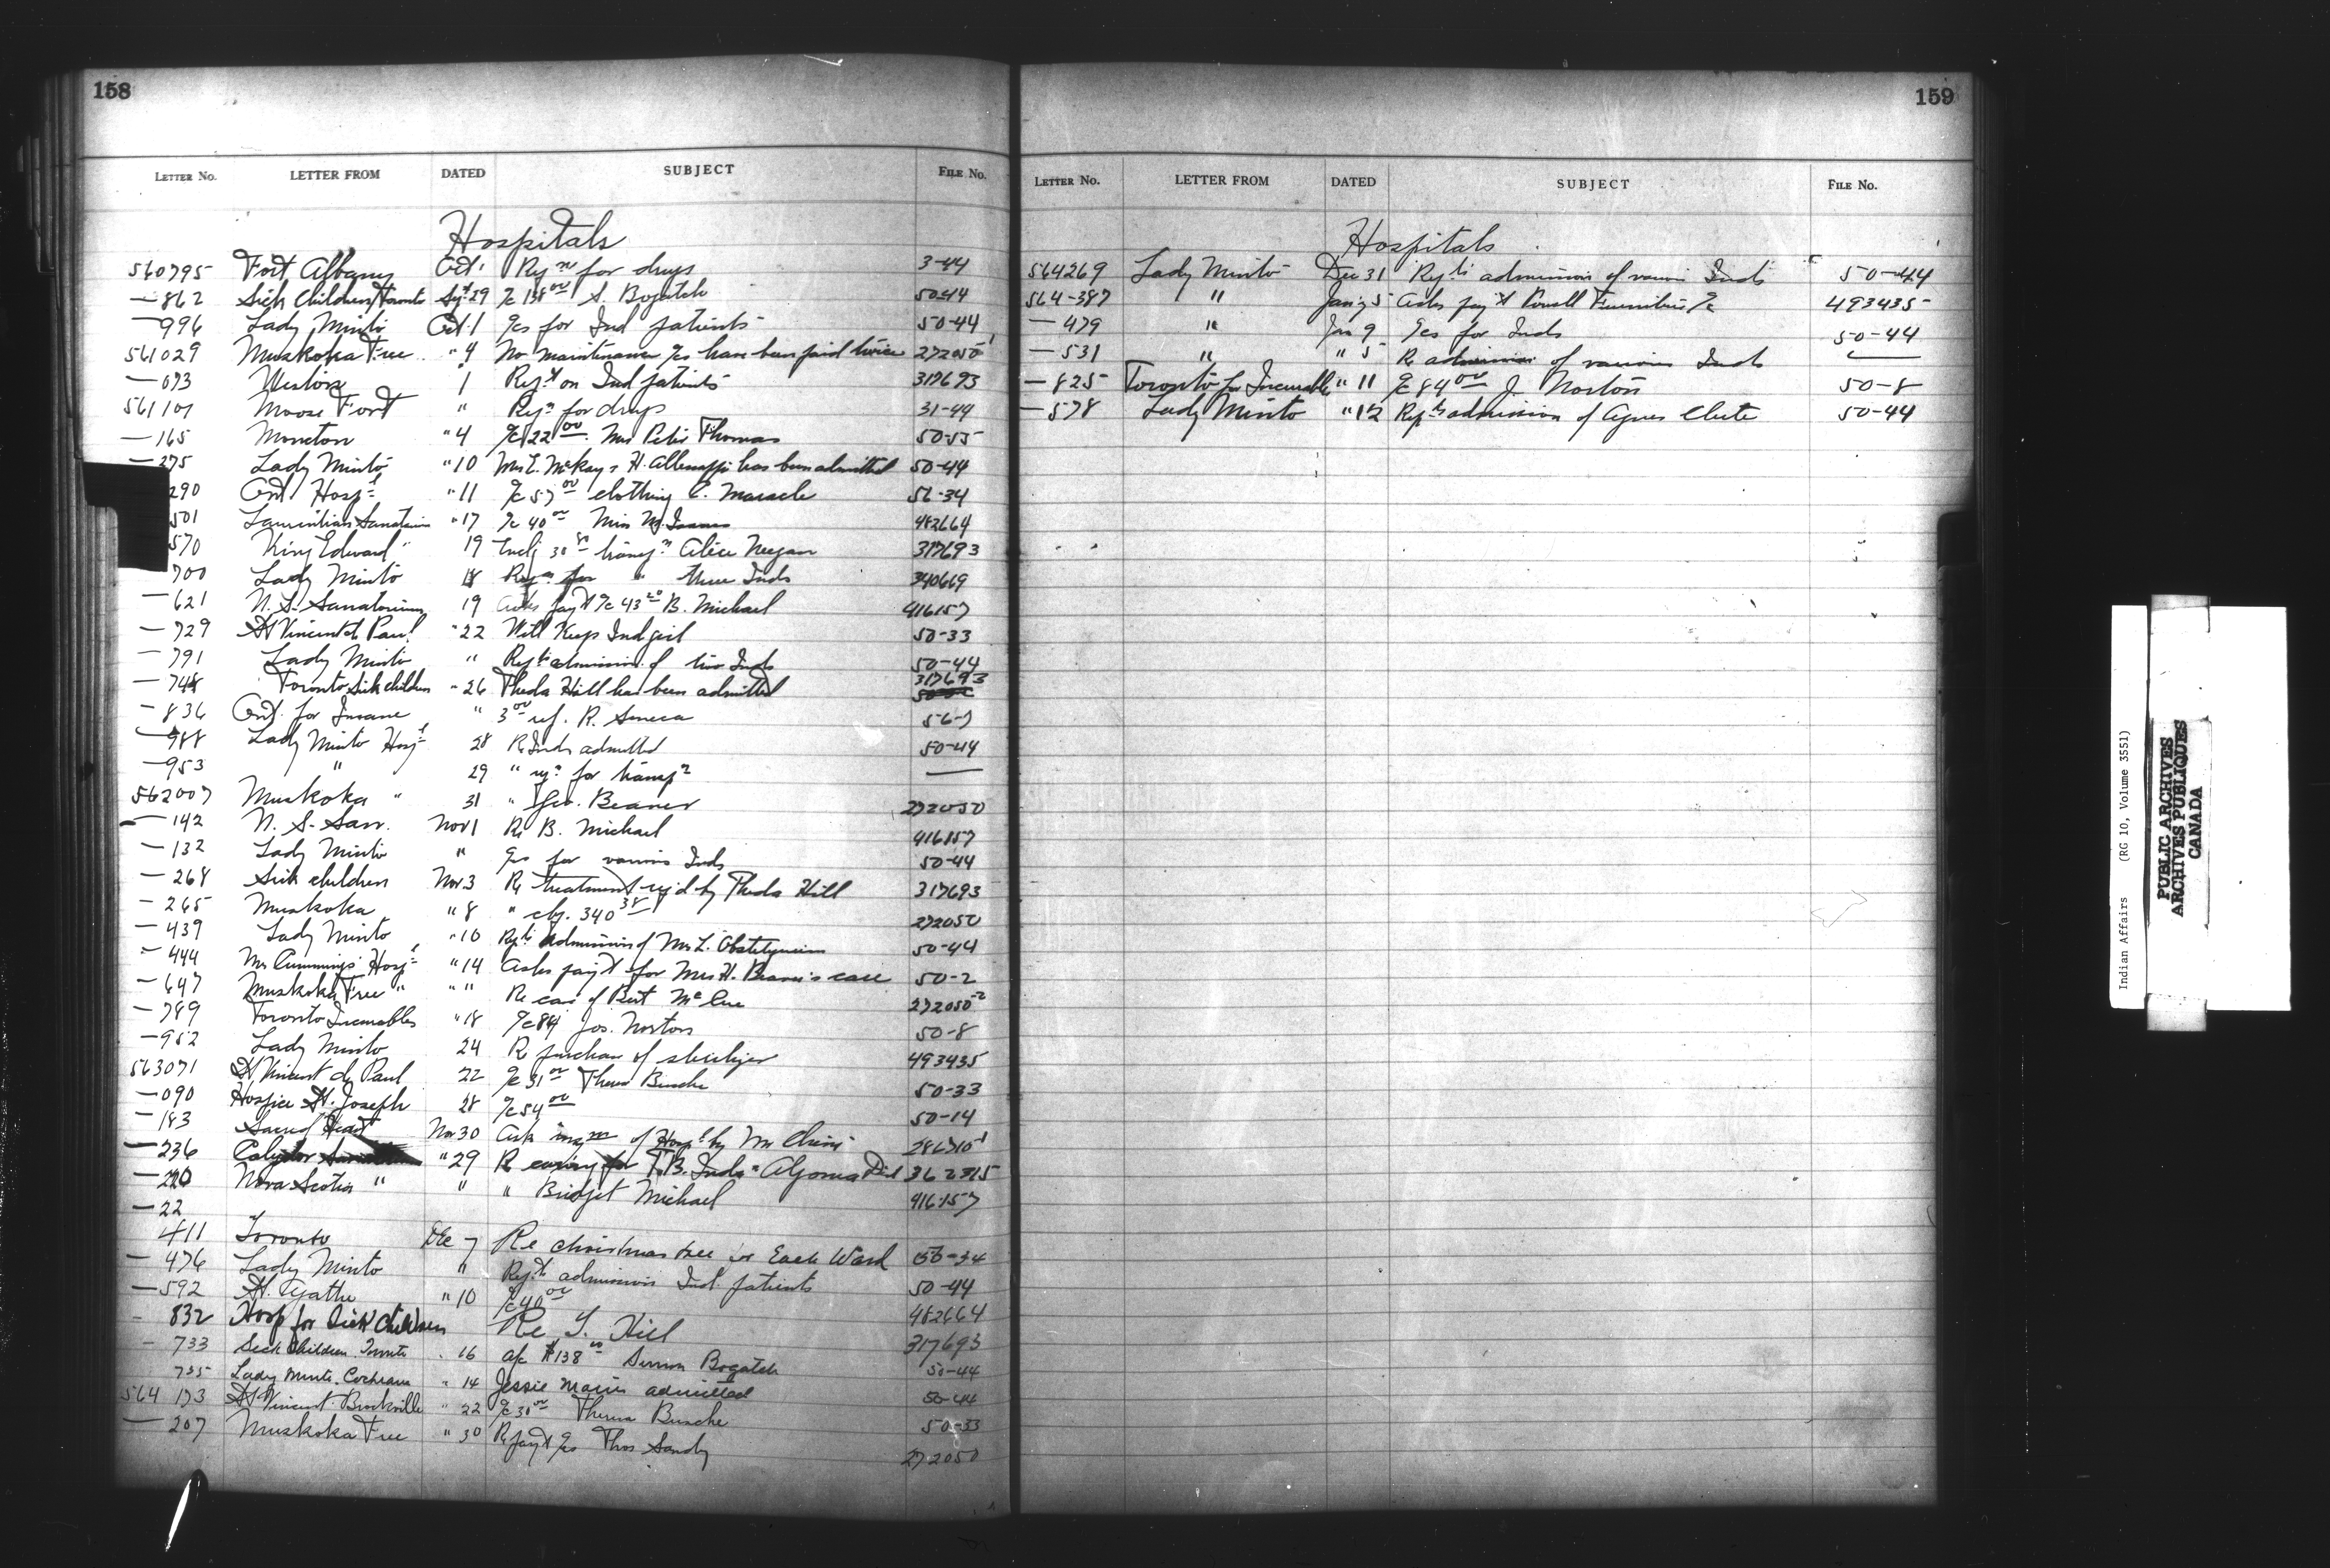 158
LETTER No. LETTER FROM DATED SUBJECT FILE No.
Hospitals
560795 Fort Albany Oct 1 Reqn for drugs 3-44
—862 Sick Children Toronto Sept 29 a/c 138.00 S. Bogatch 50-44
—996 Lady Minto Oct 1 a/cs for Ind patients 50-44
561029 Muskoka Free " 4 No maintenance a/cs have been paid twice 272050-1
—073 Weston 1 Rept on Ind patients 317693
561107 Moose Fort " Reqn for drugs 31-44
—165 Moncton " 4 a/c 122.00 Mrs Peter Thomas 50-55
—275 Lady Minto " 10 Mrs E. McKay & H. has been admitted 50-44
290 Ont Hospl " 11 a/c 57.00 clothing C. Maracle 56-34
501 Laurentian Sanatorium " 17 a/c 40.00 Miss M. 482664
570 King Edward " 19 transpn Alice Neegan 317693
700 Lady Minto 18 Reqn for " three Inds 340669
—621 N. S. Sanatorium 19 Asks payt a/c 43.20 B. Michael 416157
—729 St Vincent de Paul " 22 Will Keep Ind girl 50-33
—791 Lady Minto " Repts admission of two Inds 50-44
—748 Toronto Sick children " 26 Theda Hill has been admitted 317693
—836 Ont. for Insane " 3.00 ref. R. Seneca 56-7
—988 Lady Minto Hospl 28 Re Inds admitted 50-44
—953 " 29 " reqn for transpn —
562007 Muskoka " 31 " Geo. Beaver 272050
—142 N. S. San. Nov 1 Re B. Michael 416157
—132 Lady Minto " a/cs for various Inds 50-44
—268 Sick children Nov 3 Re treatment req'd by Theda Hill 317693
—265 Muskoka " 8 " chq. 340.38 272050
—439 Lady Minto " 10 Repts admission of Mrs L. 50-44
—444 Mrs Cummings' Hospl " 14 Asks payt for Mrs H. Beaver's care 50-2
—647 Muskoka Free " " " Re case of Bert McCue 272050-2
—789 Toronto Incurables " 18 a/c 84 Jos. Norton 50-8
—952 Lady Minto 24 Re purchase of 493435
563071 St Vincent de Paul 22 a/c 31.00 Theresa Busche 50-33
—090 Hospice St. Joseph 28 a/c 54.00 50-14
—183 Sacred Heart Nov 30 Ask of Hospl by Mr 286710-1
—236 Calydor " 29 Re caring for T.B. Inds - Algoma Dist 362315
—220 Nova Scotia " " " Bridget Michael 416157
—22
411 Toronto Dec 7 Re christmas tree in Each Ward 56-34
—476 Lady Minto " Repts admission Ind. patients 50-44
—592 St. Agathe " 10 a/c 40.00 482664
- 832 Hosp for Sick Children Re T. Hill 317693
- 733 Sick Children Toronto " 16 a/c $138.00 Simon Bogatch 50-44
755 Lady Minto Cochrane " 14 Jessie admitted 50-44
564 173 St Vincent Brockville " 22 a/c 30.00 Theresa Busche 50-33
—207 Muskoka Free " 30 Re payt a/cs Thos Sandy 272050
159
LETTER No. LETTER FROM DATED SUBJECT FILE No.
Hospitals
564269 Lady Minto Dec 31 Repts admission of various Inds 50-44
564-387 " Jany 5 Asks payt Powell Furniture a/c 493435
—479 " Jan 9 a/cs for Inds 50-44
—531 " " 5 Re admission of various Inds —
—825 Toronto for Incurable " 11 a/c 84.00 J. Norton 50-8
—578 Lady Minto " 12 Repts admission of Agnes Chute 50-44
Indian Affairs (RG 10, Volume 3551)
PUBLIC ARCHIVES
ARCHIVES PUBLIQUES
CANADA